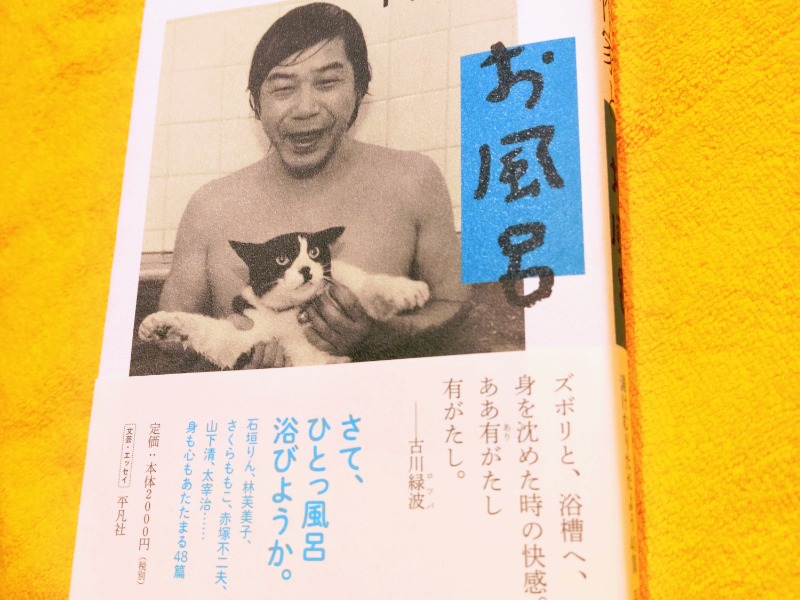 お風呂
ズボリと、浴槽へ、
身を沈めた時の快感。
ああ有がたし
あり
有がたし。
――古川緑波
ロッパ
さて、
ひとっ風呂
浴びようか。
石垣りん、林芙美子、
さくらももこ、赤塚不二夫、
山下清、太宰治……
身も心もあたたまる48篇
定価:本体2000円(税別)
文芸・エッセイ
平凡社